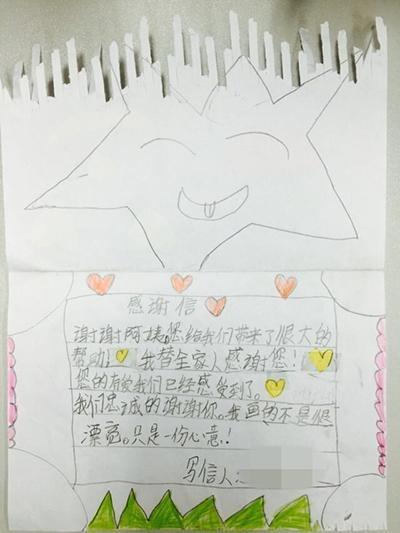 感谢信
谢谢阿姨。您给我们带来了很大的
帮助！我替全家人感谢您！
您的有爱我们已经感受到了。
我们忠诚的谢谢你。我画的不是很
漂亮。只是一份心意！
写信人：